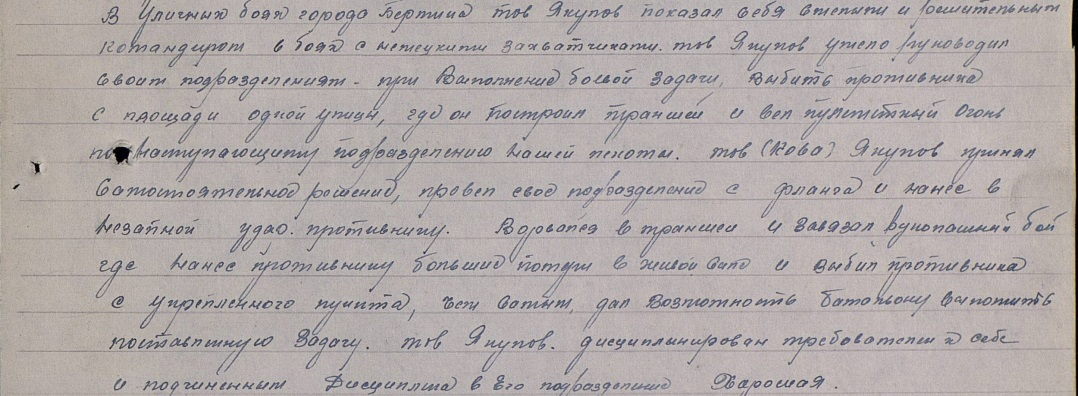 В Уличных боях города Берлина тов Якупов показал себя смелым и решительным
командиром в боях с немецкими захватчиками. тов Якупов умело руководил
своим подразделением - при выполнение боевой задачи, выбить противника
с площади одной улицы, где он построил траншеи и вел пулеметный огонь
по наступающиму подразделению нашей пехоты. тов Якупов принял
Самостоятельное решение, провел свое подразделение с фланга и нанес в
незапной удар. противнику. Ворвался в траншеи и завязал рукопашный бой
где нанес противнику большие потери в живой силе и выбил противника
с укрепленного пункта, чем самым, дал возможность батальону выполнить
поставленную задачу. тов Якупов. дисциплинирован требователен к себе
и подчиненным Дисциплина в Его подразделение Харошая.